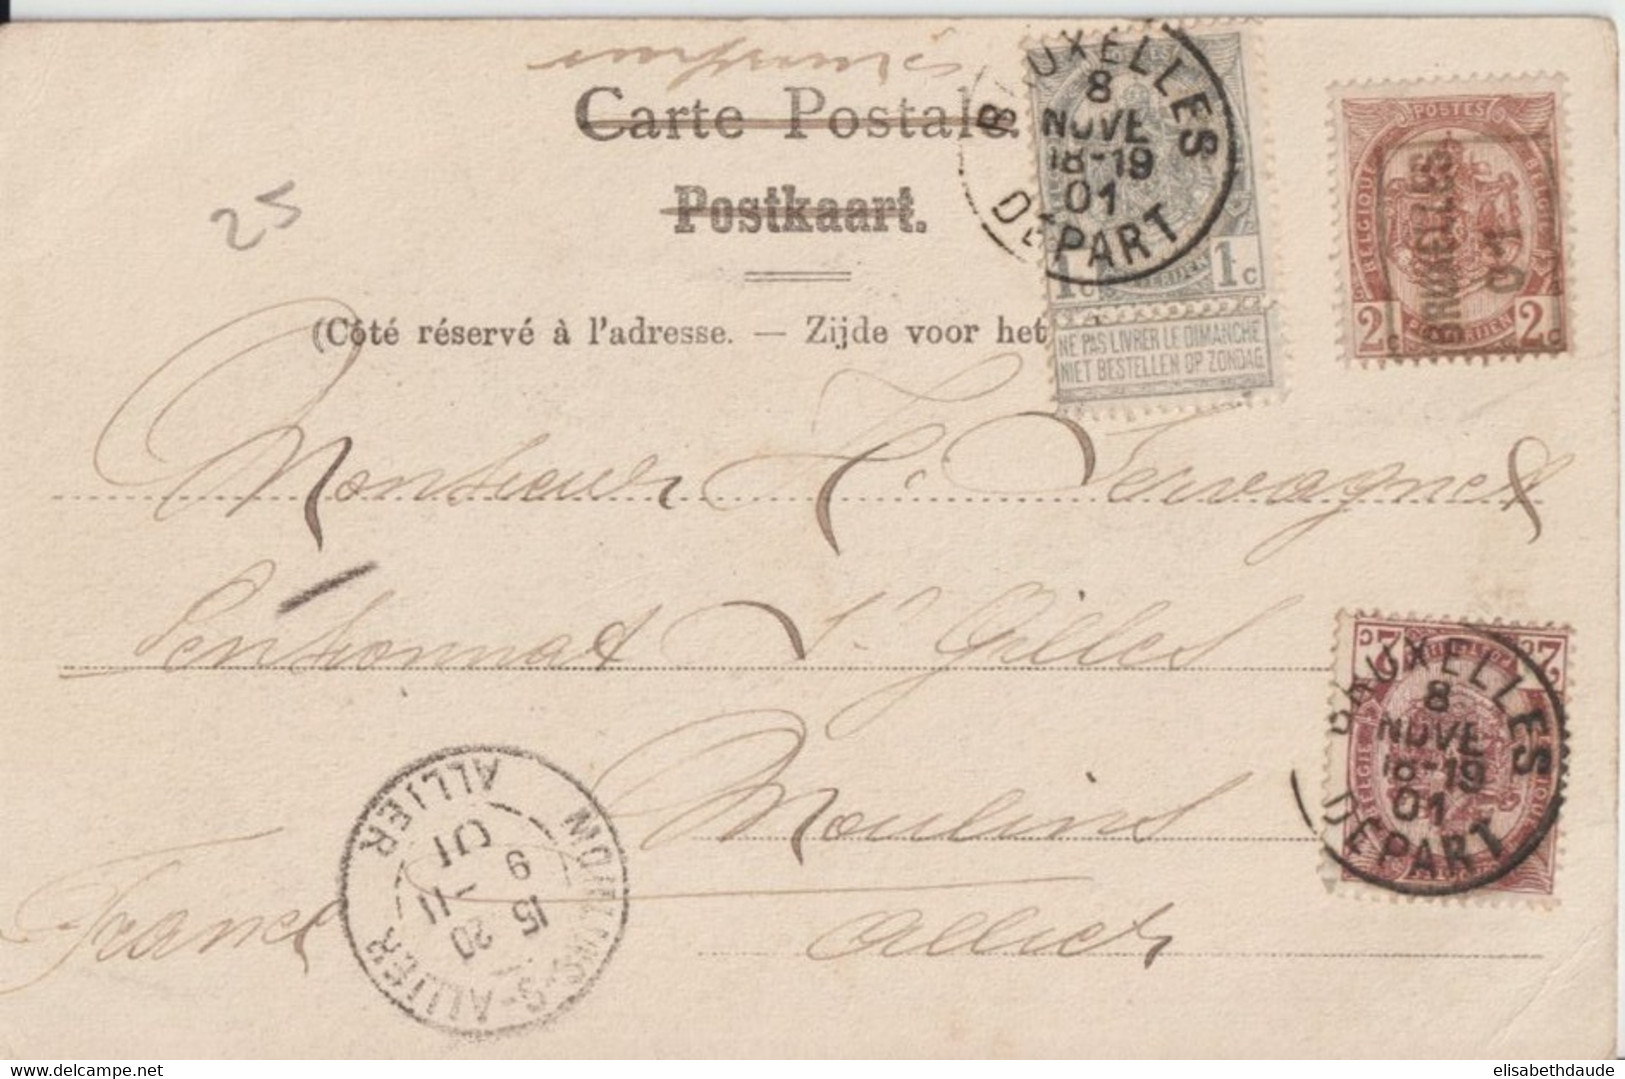 imprimés
Carte Postale.
Postkaart.
(Côté réservé à l'adresse. — Zijde voor het
25
BRUXELLES
8
NOVE
18-19
01
DEPART
1c 1c
NE PAS LIVRER LE DIMANCHE
NIET BESTELLEN OP ZONDAG
POSTES
BELGIQUE
BELGIË
2c 2c
BRUXELLES
01
Monsieur H. Tervagnes
Pensionnat St Gilles
Moulins
Allier
France
2c 2c
BRUXELLES
8
NOVE
18-19
01
DEPART
MOULINS-S-ALLIER
ALLIER
15 20
9 -11
01
elisabethdaude